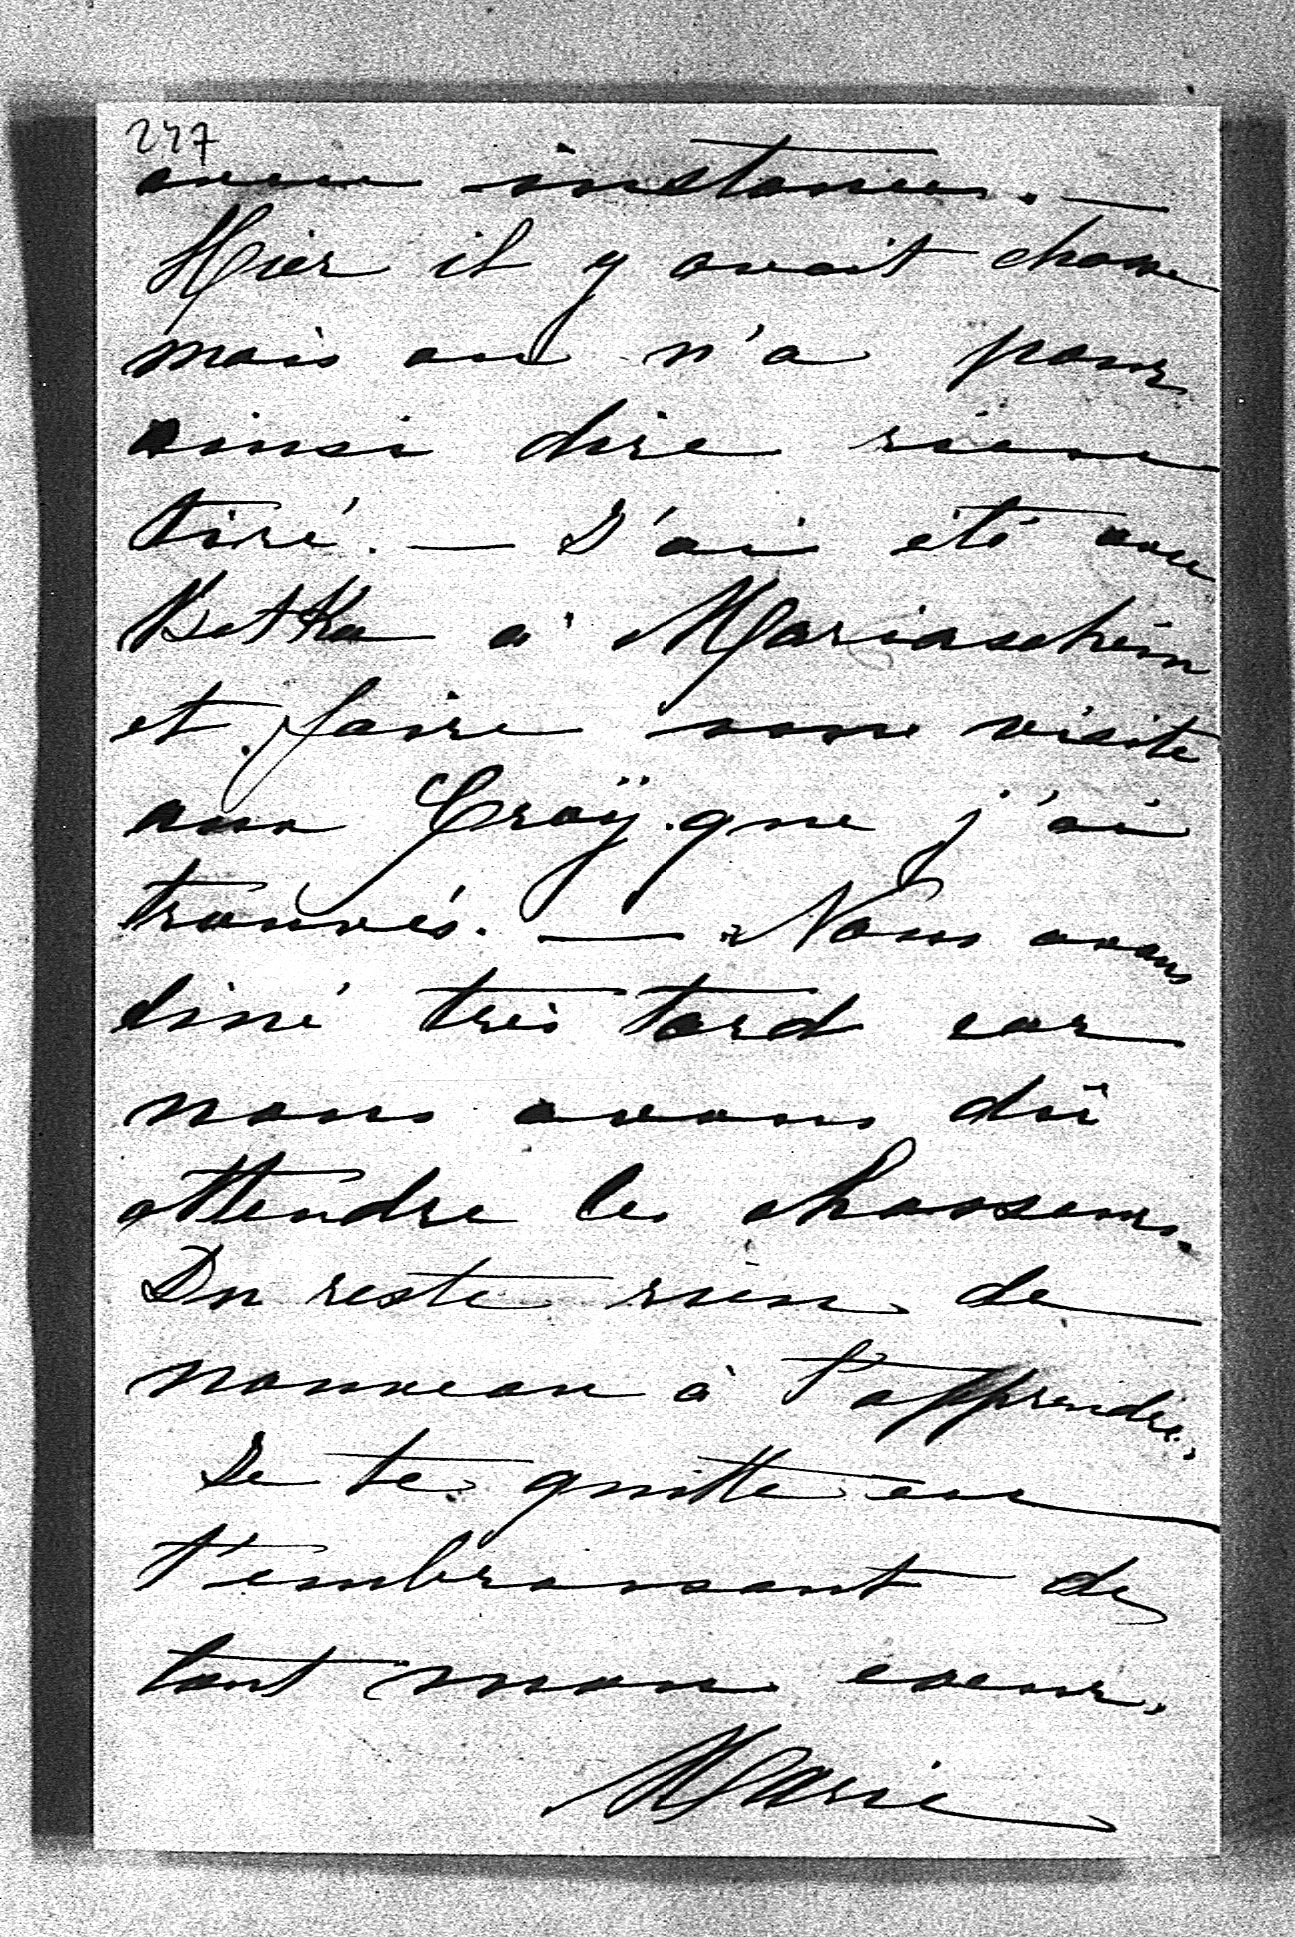 247
avec instances. —
Hier il y avait chasse
mais on n'a pour
ainsi dire rien
tiré. — J'ai été avec
à Mariaschein
et faire une visite
aux Croÿ que j'ai
trouvés. — Nous avons
diné très tard car
nous avons dû
attendre les chasseurs.
Du reste rien de
nouveau à t'apprendre.
Je te quitte en
t'embrassant de
tout mon coeur.
Marie